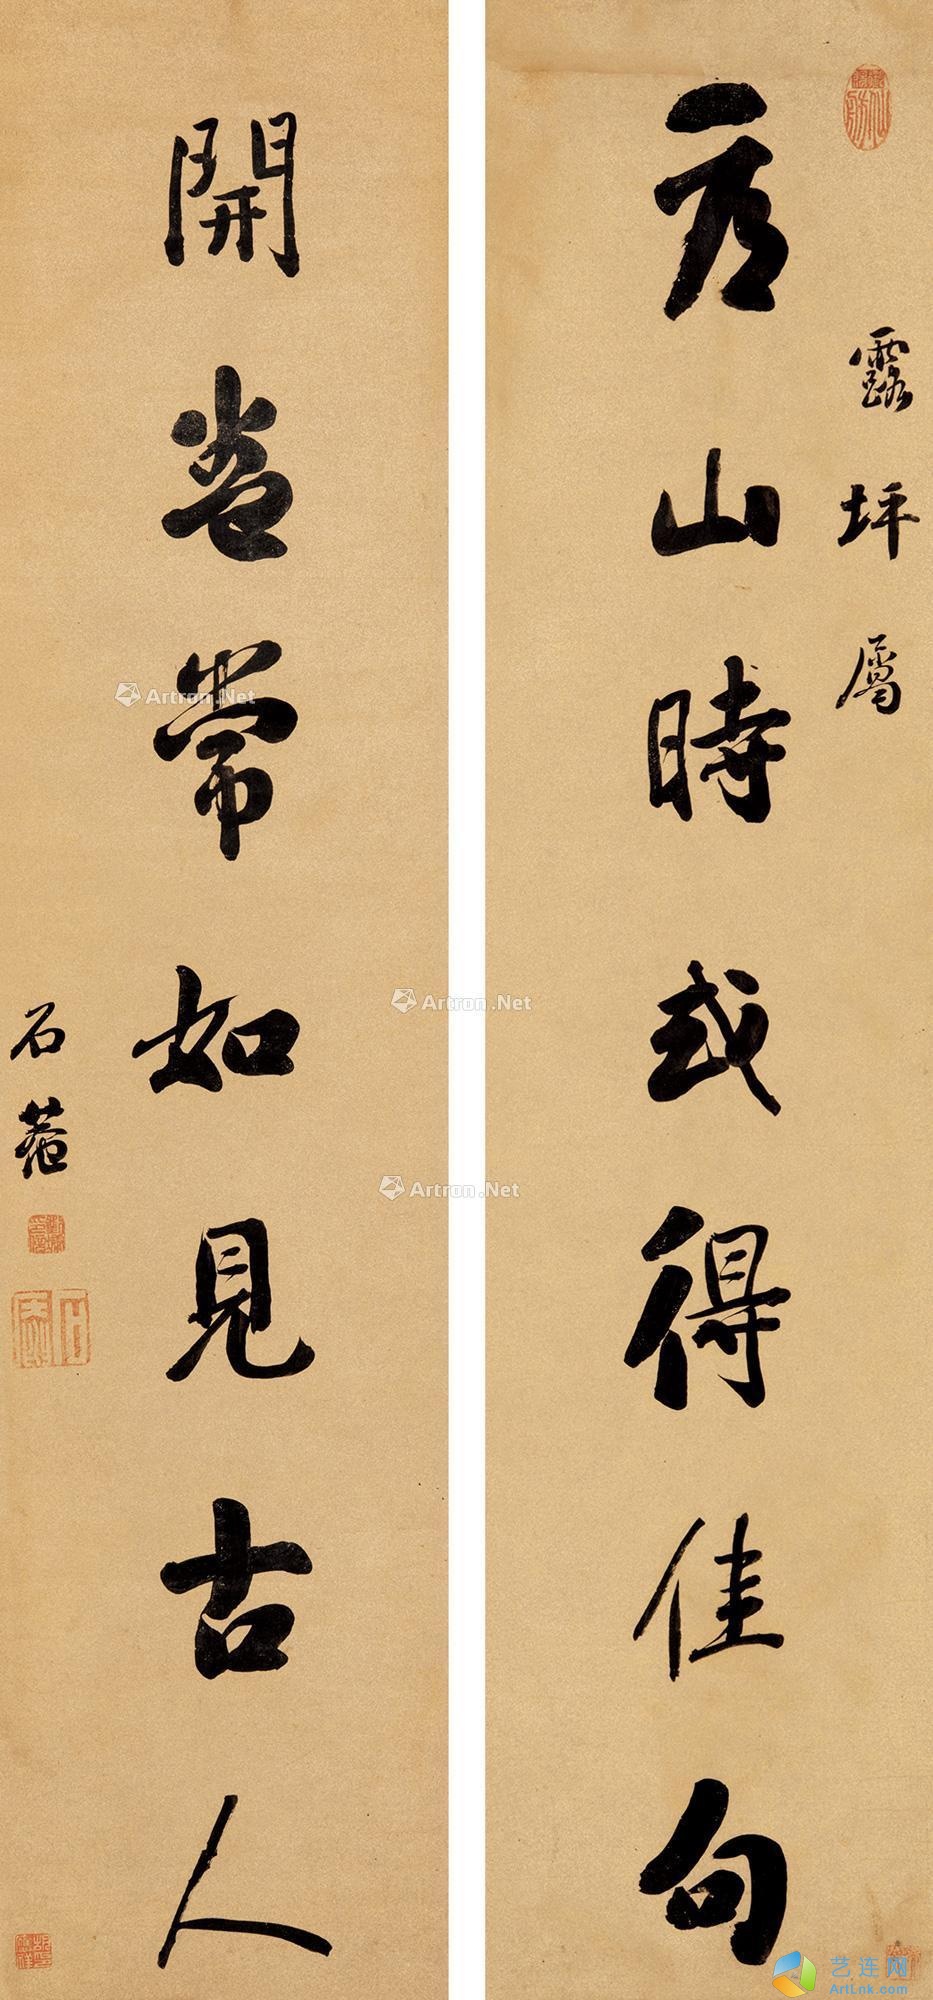 露坪属
看山時或得佳句
開卷常如見古人
石菴
Artron.Net
Artron.Net
Artron.Net
艺连网
ArtLnk.com